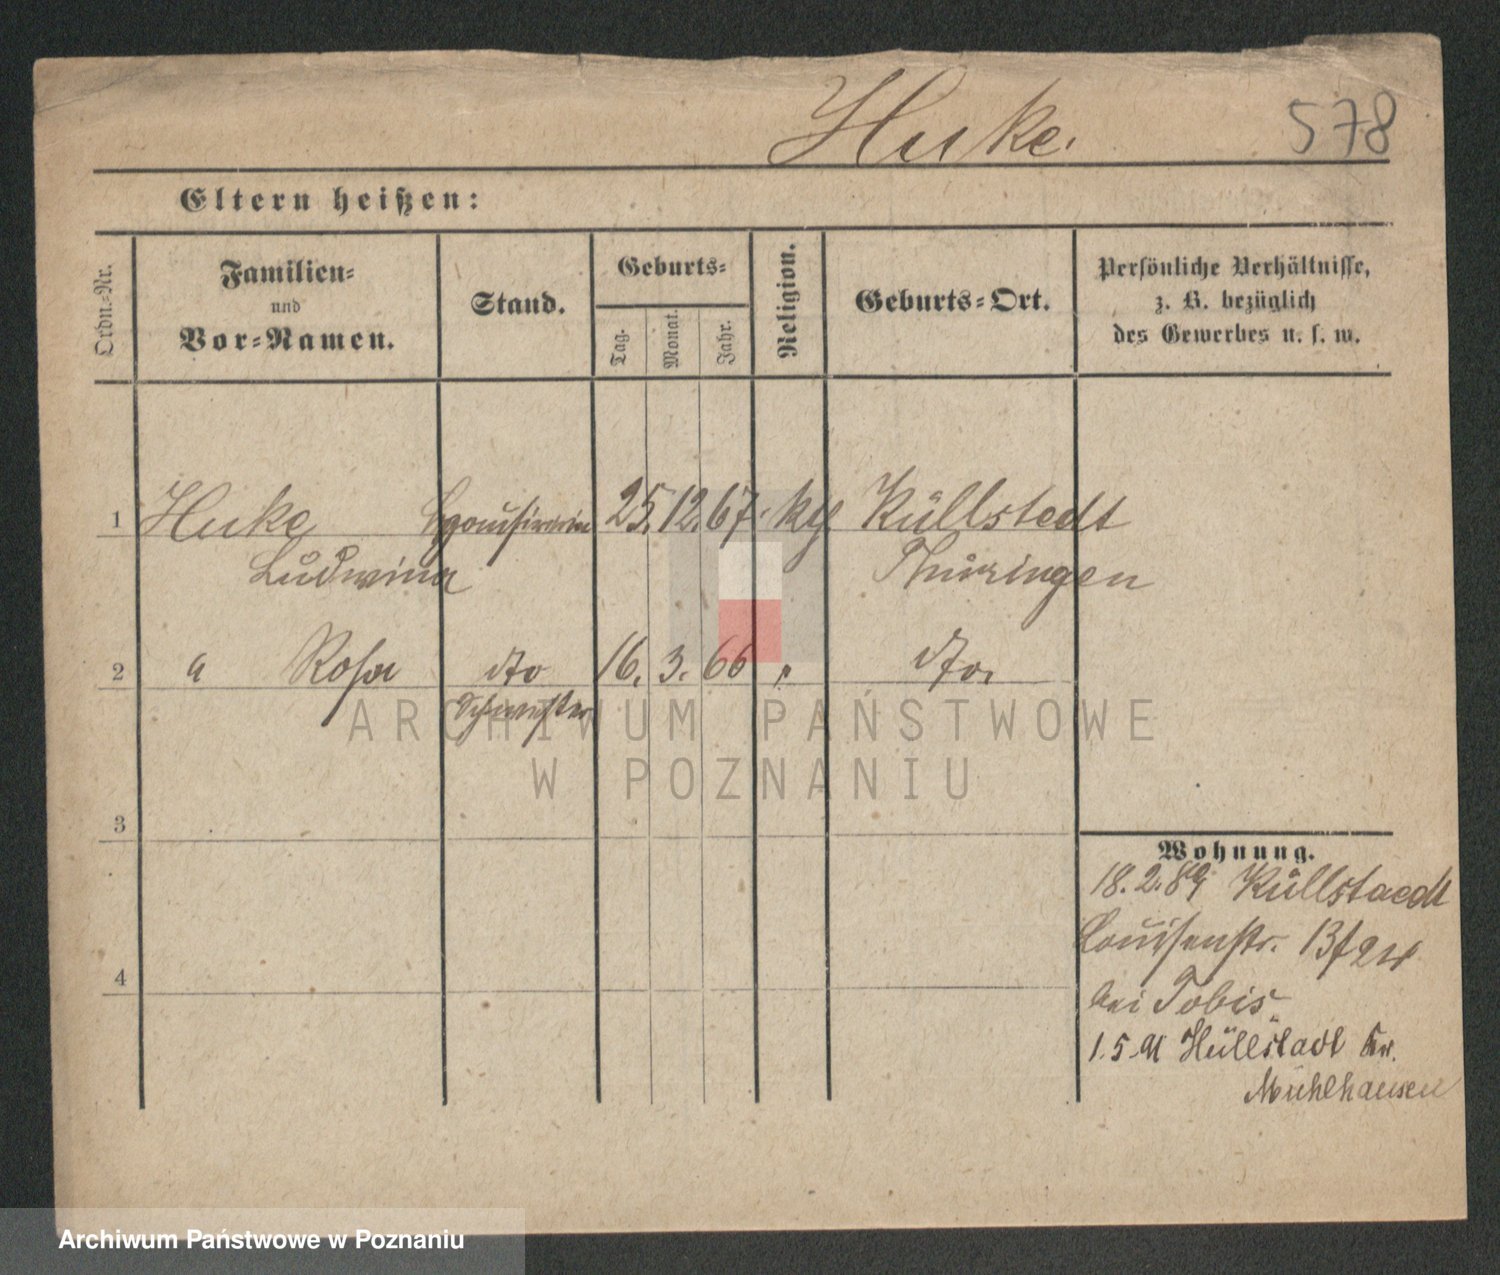 Huke. 578
Eltern heißen:
Ordn.-Nr. Familien- und Vor-Namen. Stand. Geburts- Tag. Monat. Jahr. Religion. Geburts-Ort. Persönliche Verhältnisse, z. B. bezüglich des Gewerbes u. s. w.
1 Huke 25. 12. 67. kth Küllstedt
Ludwina Thüringen
2 " Rosa dto 16. 3. 66 " dto.
Schwester
3
4
Wohnung.
18.2.89 Küllstaedt
Louisenstr. 13
bei Tobis.
1.5.91 Küllstadt Kr.
Mühlhausen
ARCHIWUM PAŃSTWOWE
W POZNANIU
Archiwum Państwowe w Poznaniu